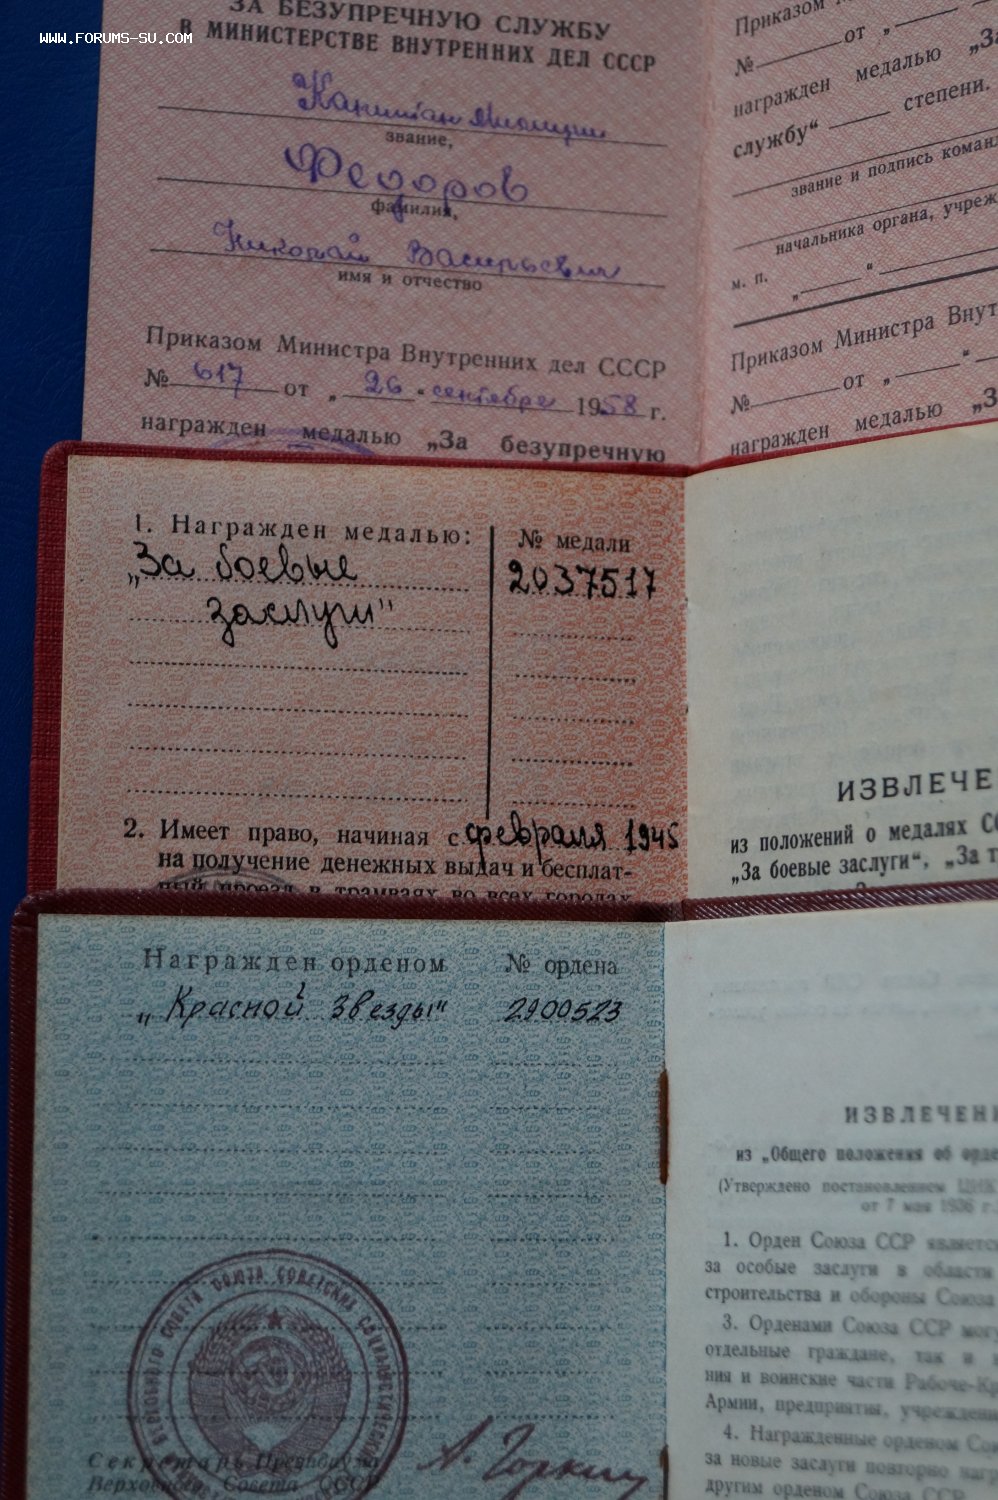 WWW.FORUMS-SU.COM
ЗА БЕЗУПРЕЧНУЮ СЛУЖБУ
В МИНИСТЕРСТВЕ ВНУТРЕННИХ ДЕЛ СССР
Капитан Милиции
звание,
Федоров
фамилия,
Николай Васильевич
имя и отчество
Приказом Министра Внутренних дел СССР
№ 617 от „ 26 “ сентября 1958 г.
награжден медалью „За безупречную
Приказом
№ от „
награжден медалью „За
службу“ степени.
звание и подпись
начальника органа,
м. п. „ “
Приказом Министра
№ от „ “
награжден медалью
1. Награжден медалью:
„За боевые
заслуги"
№ медали
2037517
2. Имеет право, начиная с февраля 1945
на получение денежных выдач и бесплат-
ный проезд в трамваях во всех городах
ИЗВЛЕЧЕ
из положений о медалях
„За боевые заслуги“,
Награжден орденом № ордена
„Красной Звезды" 2900523
Секретарь Президиума
Верховного Совета СССР
А. Горкин
ИЗВЛЕЧЕНИ
из „Общего положения об орде
(Утверждено постановлением ЦИК
от 7 мая 1936 г.
1. Орден Союза ССР является
за особые заслуги в области
строительства и обороны Союза
3. Орденами Союза ССР мог
отдельные граждане, так и
ния и воинские части Рабоче-Кр
Армии, предприятия, учреждени
4. Награжденные орденом Сою
за новые заслуги повторно наг
другим орденом Союза ССР.